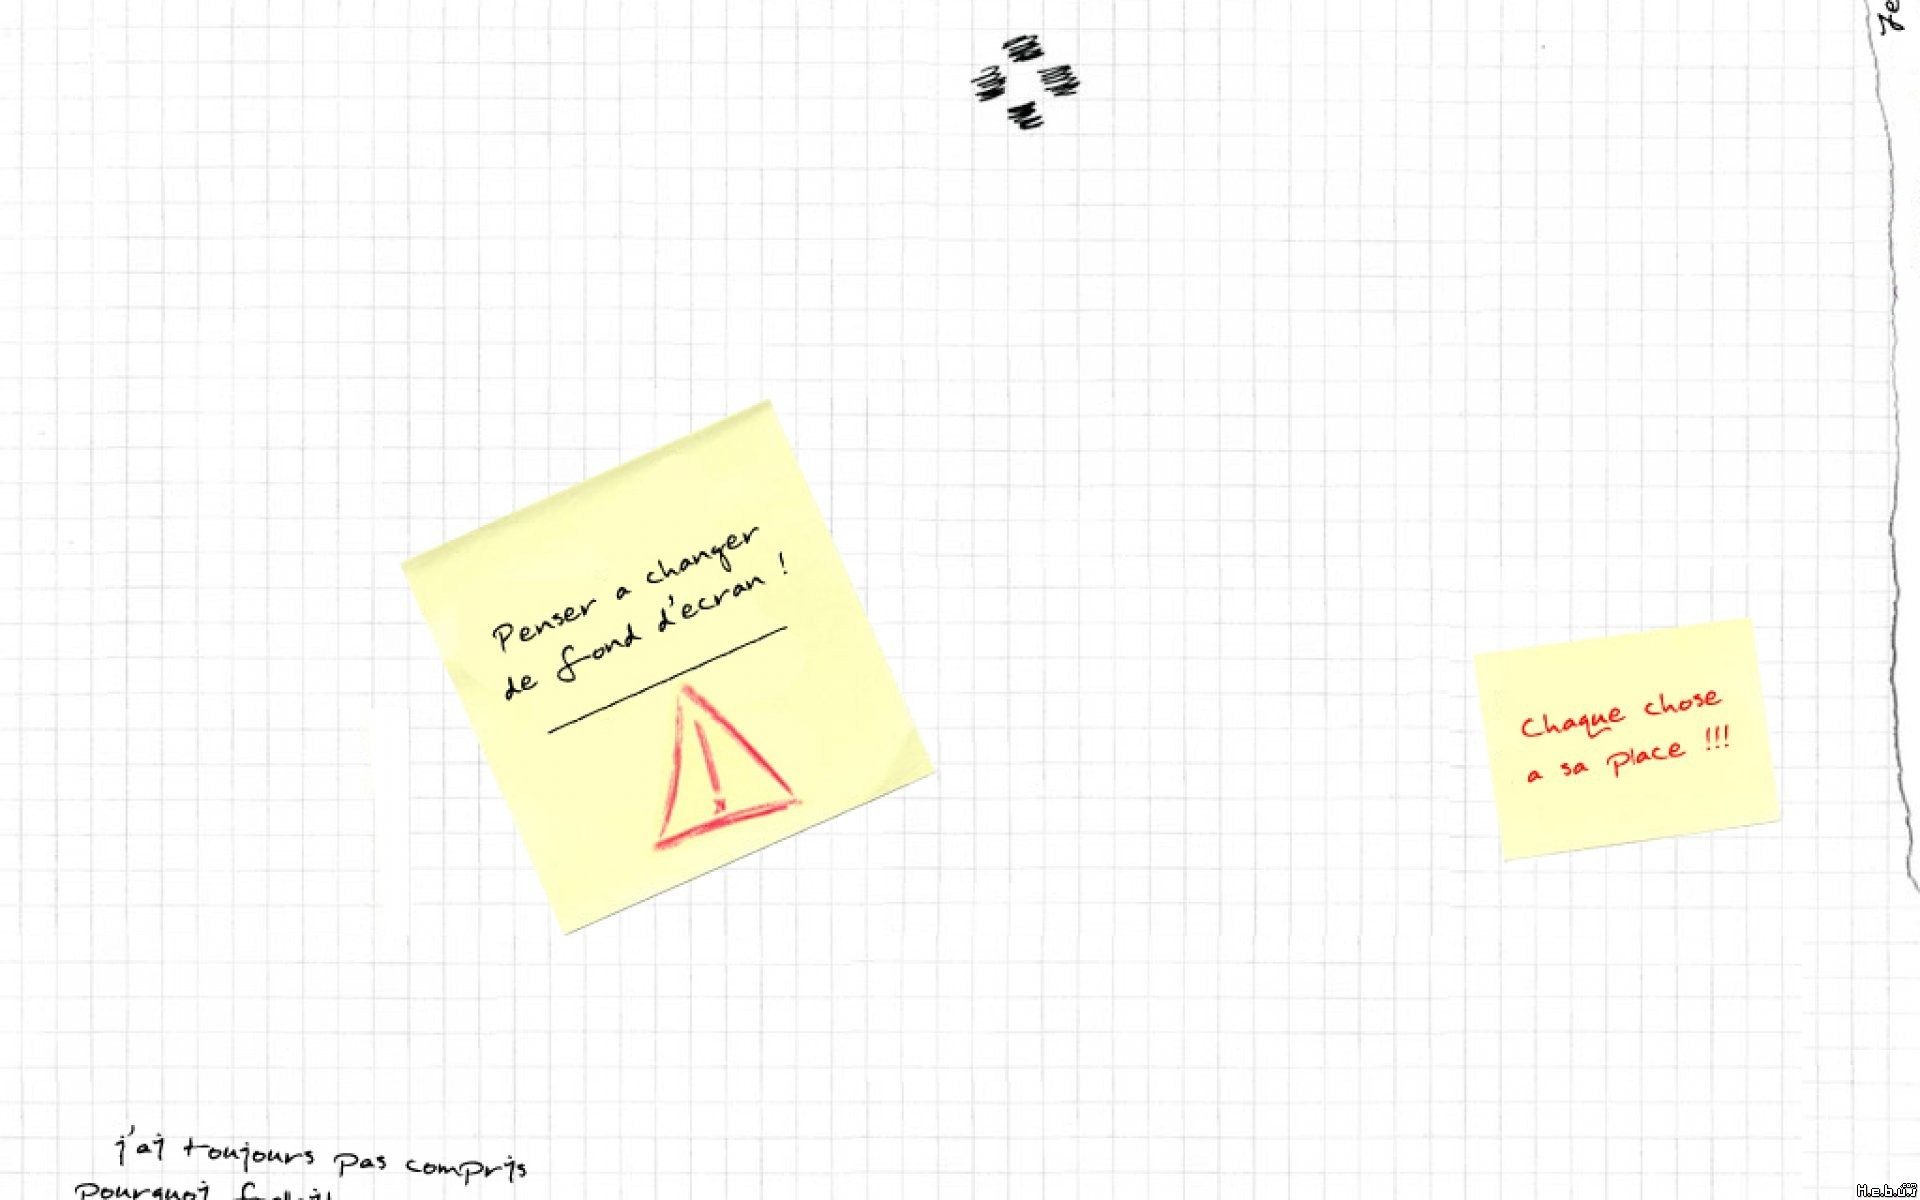 Je
Penser a changer
de fond d'ecran !
Chaque chose
a sa place !!!
j'ai toujours pas compris
pourquoi fallait